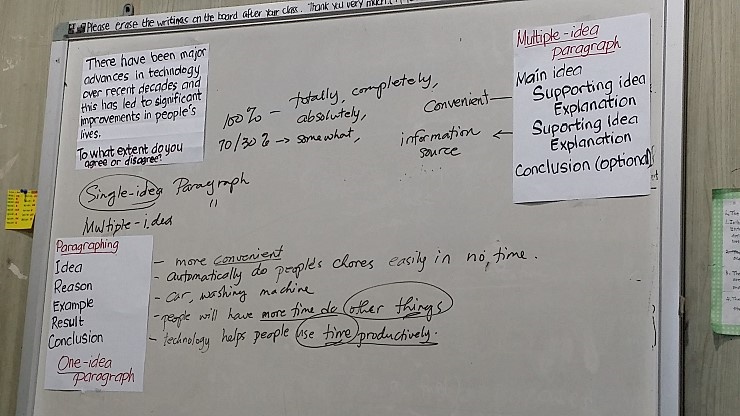 Please erase the writings on the board after your class. Thank you very much.
There have been major
advances in technology
over recent decades and
this has led to significant
improvements in people's
lives.
To what extent do you
agree or disagree?
100% — totally, completely,
absolutely,
70/30% → somewhat,
Convenient
information
source
Multiple-idea
paragraph
Main idea
Supporting idea
Explanation
Suporting Idea
Explanation
Conclusion (optional)
Single-idea Paragraph
Multiple-idea "
Paragraphing
Idea
Reason
Example
Result
Conclusion
One-idea
paragraph
— more convenient
— automatically do people's chores easily in no time.
— Car, washing machine
— people will have more time do other things
— technology helps people use time productively.